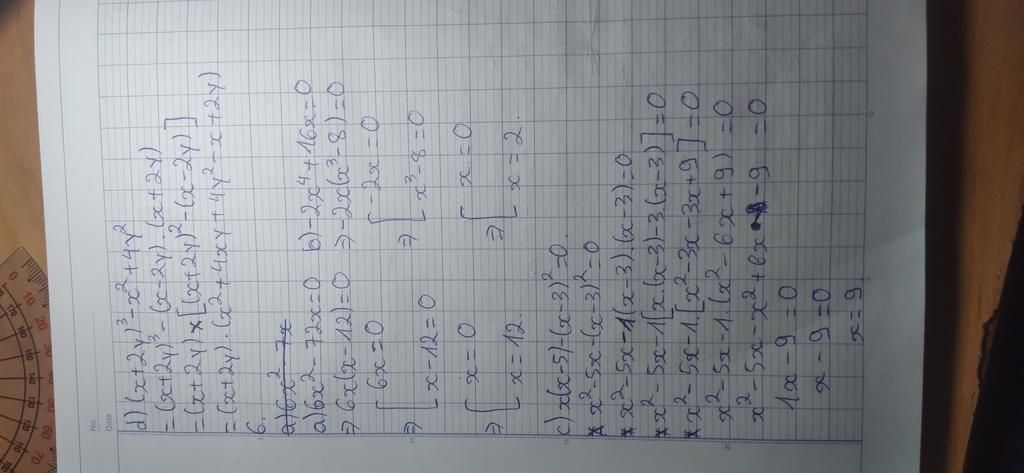 No.
Date
d) (x+2y)³-x²+4y²
= (x+2y)³-(x-2y).(x+2y)
= (x+2y) x [(x+2y)²-(x-2y)]
= (x+2y).(x²+4xy+4y²-x+2y)
6.
a) 6x²-7x
a) 6x²-72x=0 b) -2x⁴+16x=0
⇒ 6x(x-12)=0 ⇒ -2x(x³-8)=0
[ 6x=0 ⇒ [ -2x=0
⇒ [ x-12=0 [ x³-8=0
[ x=0 [ x=0
⇒ [ x=12. ⇒ [ x=2.
c) x(x-5)-(x-3)²=0.
x²-5x-(x-3)²=0
x²-5x-1(x-3).(x-3)=0
x²-5x-1[x.(x-3)-3.(x-3)]=0
x²-5x-1.[x²-3x-3x+9]=0
x²-5x-1.(x²-6x+9)=0
x²-5x-x²+6x-9=0
1x-9=0
x-9=0
x=9
0 10 20 30 40 50 60 70